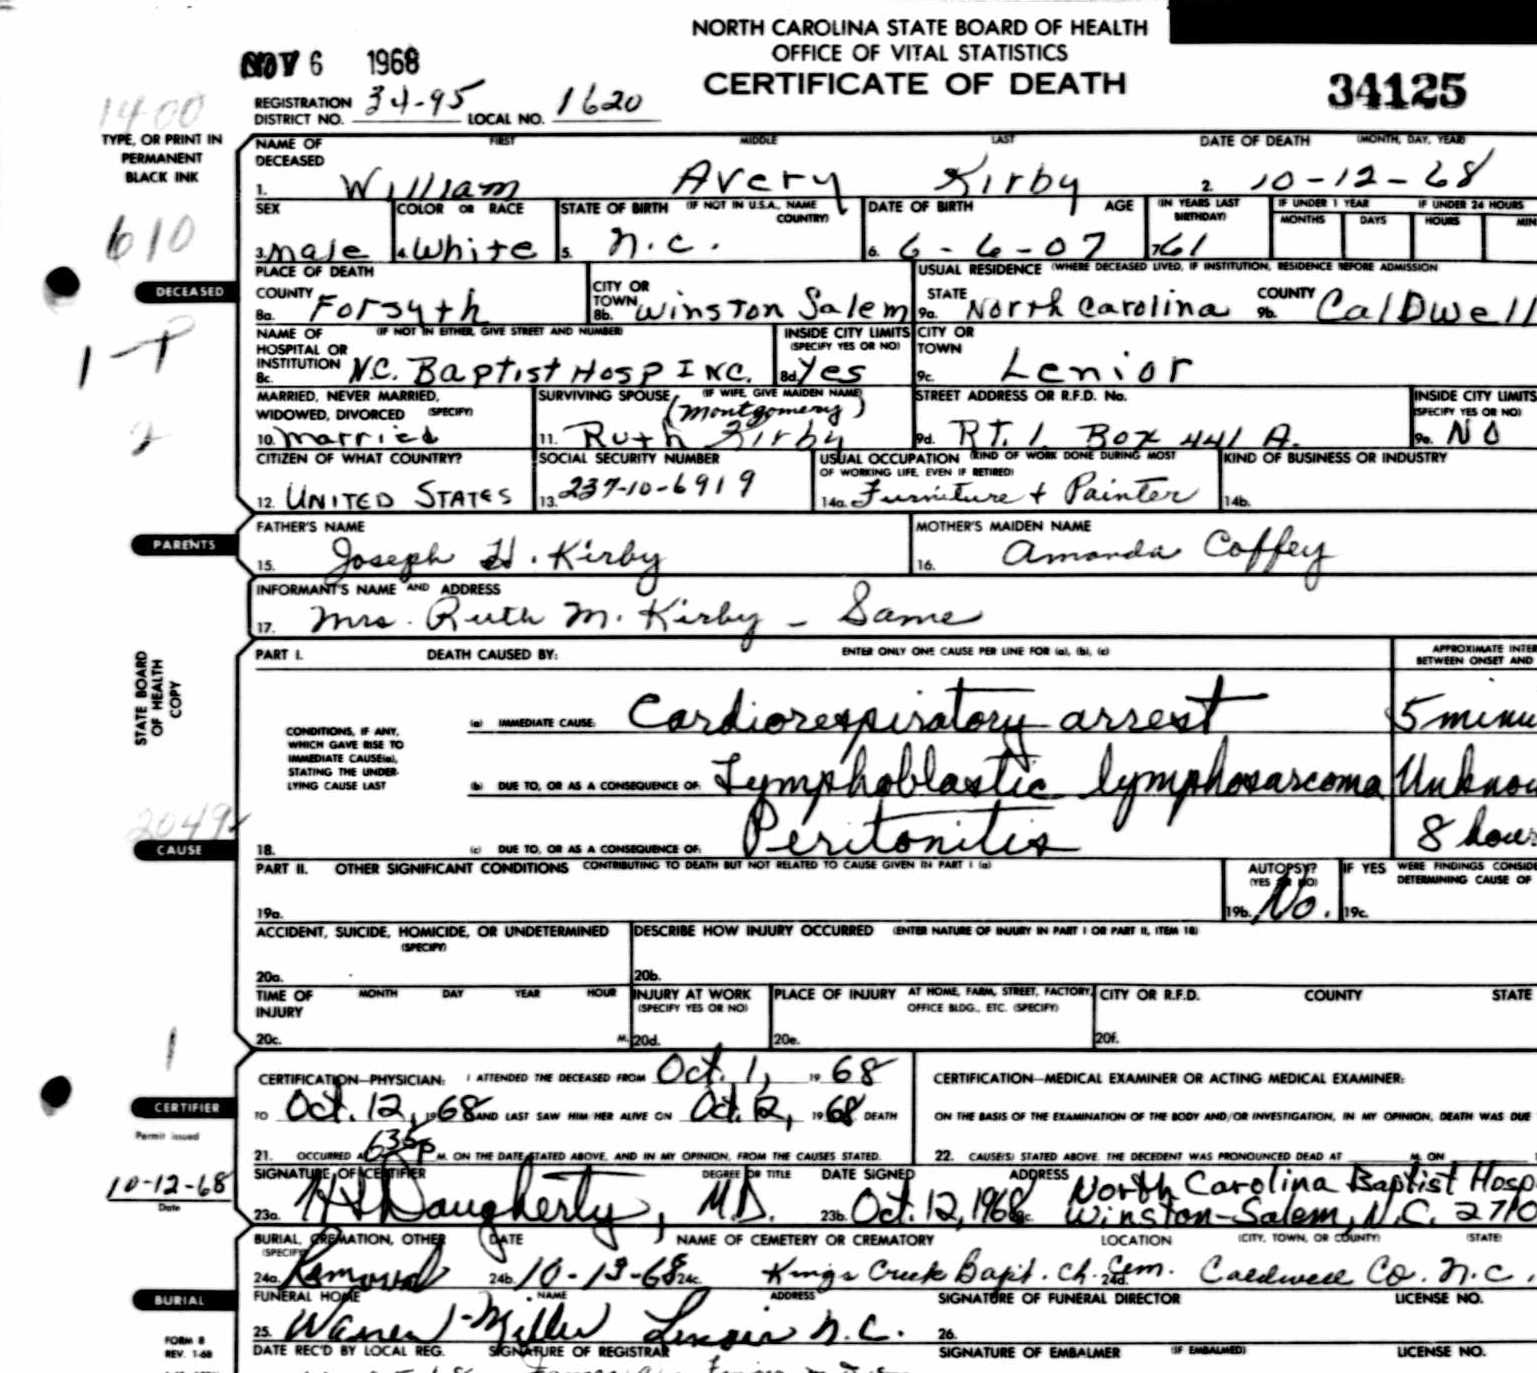 NORTH CAROLINA STATE BOARD OF HEALTH
OFFICE OF VITAL STATISTICS
CERTIFICATE OF DEATH
NOV 6 1968
34125
1400
REGISTRATION DISTRICT NO. 34-95 LOCAL NO. 1620
TYPE, OR PRINT IN
PERMANENT
BLACK INK
NAME OF DECEASED FIRST MIDDLE LAST DATE OF DEATH (MONTH, DAY, YEAR)
1. William Avery Kirby 2. 10-12-68
SEX COLOR OR RACE STATE OF BIRTH (IF NOT IN U.S.A., NAME COUNTRY) DATE OF BIRTH AGE (IN YEARS LAST BIRTHDAY) IF UNDER 1 YEAR IF UNDER 24 HOURS
MONTHS DAYS HOURS MIN
610
3. male 4. White 5. N.C. 6. 6-6-07 7. 61
DECEASED
PLACE OF DEATH USUAL RESIDENCE (WHERE DECEASED LIVED, IF INSTITUTION, RESIDENCE BEFORE ADMISSION
COUNTY CITY OR TOWN STATE COUNTY
8a. Forsyth 8b. Winston Salem 9a. North Carolina 9b. CalDwell
NAME OF HOSPITAL OR INSTITUTION (IF NOT IN EITHER, GIVE STREET AND NUMBER) INSIDE CITY LIMITS (SPECIFY YES OR NO) CITY OR TOWN
8c. N.C. Baptist Hosp INC. 8d. Yes 9c. Lenior
MARRIED, NEVER MARRIED, WIDOWED, DIVORCED (SPECIFY) SURVIVING SPOUSE (IF WIFE, GIVE MAIDEN NAME) STREET ADDRESS OR R.F.D. No. INSIDE CITY LIMITS (SPECIFY YES OR NO)
(Montgomery)
10. married 11. Ruth Kirby 9d. RT. 1 Box 441 A. 9e. NO
2
CITIZEN OF WHAT COUNTRY? SOCIAL SECURITY NUMBER USUAL OCCUPATION (KIND OF WORK DONE DURING MOST OF WORKING LIFE, EVEN IF RETIRED) KIND OF BUSINESS OR INDUSTRY
12. UNITED STATES 13. 237-10-6919 14a. Furniture + Painter 14b.
PARENTS
FATHER'S NAME MOTHER'S MAIDEN NAME
15. Joseph H. Kirby 16. Amanda Coffey
INFORMANT'S NAME AND ADDRESS
17. Mrs. Ruth M. Kirby - Same
STATE BOARD
OF HEALTH
COPY
PART I. DEATH CAUSED BY: ENTER ONLY ONE CAUSE PER LINE FOR (a), (b), (c) APPROXIMATE INTER
BETWEEN ONSET AND
CONDITIONS, IF ANY,
WHICH GAVE RISE TO
IMMEDIATE CAUSE(a),
STATING THE UNDER-
LYING CAUSE LAST
(a) IMMEDIATE CAUSE: Cardiorespiratory arrest 5 minu
(b) DUE TO, OR AS A CONSEQUENCE OF: Lymphoblastic lymphosarcoma Unknow
2049
CAUSE
18. (c) DUE TO, OR AS A CONSEQUENCE OF: Peritonitis 8 hour
PART II. OTHER SIGNIFICANT CONDITIONS CONTRIBUTING TO DEATH BUT NOT RELATED TO CAUSE GIVEN IN PART I (a) AUTOPSY? (YES OR NO) IF YES WERE FINDINGS CONSIDE
DETERMINING CAUSE OF
19a. 19b. No. 19c.
ACCIDENT, SUICIDE, HOMICIDE, OR UNDETERMINED (SPECIFY) DESCRIBE HOW INJURY OCCURRED (ENTER NATURE OF INJURY IN PART I OR PART II, ITEM 18)
20a. 20b.
TIME OF INJURY MONTH DAY YEAR HOUR INJURY AT WORK (SPECIFY YES OR NO) PLACE OF INJURY AT HOME, FARM, STREET, FACTORY, OFFICE BLDG., ETC. (SPECIFY) CITY OR R.F.D. COUNTY STATE
20c. M. 20d. 20e. 20f.
1
CERTIFICATION—PHYSICIAN: I ATTENDED THE DECEASED FROM Oct. 1, 19 68 CERTIFICATION—MEDICAL EXAMINER OR ACTING MEDICAL EXAMINER:
CERTIFIER
TO Oct. 12, 1968 AND LAST SAW HIM/HER ALIVE ON Oct. 12, 19 68 DEATH ON THE BASIS OF THE EXAMINATION OF THE BODY AND/OR INVESTIGATION, IN MY OPINION, DEATH WAS DUE
Permit issued
21. OCCURRED AT 635p M. ON THE DATE STATED ABOVE, AND IN MY OPINION, FROM THE CAUSES STATED. 22. CAUSE(S) STATED ABOVE. THE DECEDENT WAS PRONOUNCED DEAD AT M. ON
10-12-68
Date
SIGNATURE OF CERTIFIER DEGREE OR TITLE DATE SIGNED ADDRESS
23a. HS Daugherty, M.D. 23b. Oct. 12, 1968 23c. North Carolina Baptist Hosp
Winston-Salem, N.C. 2710
BURIAL, CREMATION, OTHER (SPECIFY) DATE NAME OF CEMETERY OR CREMATORY LOCATION (CITY, TOWN, OR COUNTY) (STATE)
24a. Removal 24b. 10-13-68 24c. Kings Creek Bapt. Ch. Cem. 24d. Caldwell Co. N.C.
BURIAL
FUNERAL HOME NAME ADDRESS SIGNATURE OF FUNERAL DIRECTOR LICENSE NO.
25. Warren-Miller Lenoir N.C. 26.
FORM 8
REV. 1-68
DATE REC'D BY LOCAL REG. SIGNATURE OF REGISTRAR SIGNATURE OF EMBALMER (IF EMBALMED) LICENSE NO.